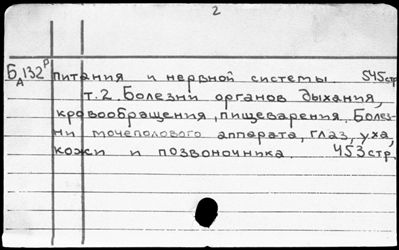 2
БА132Р питания и нервной системы. 545стр
т.2. Болезни органов дыхания,
кровообращения, пищеварения. Болез-
ни мочеполового аппарата, глаз, уха,
кожи и позвоночника. 453стр.